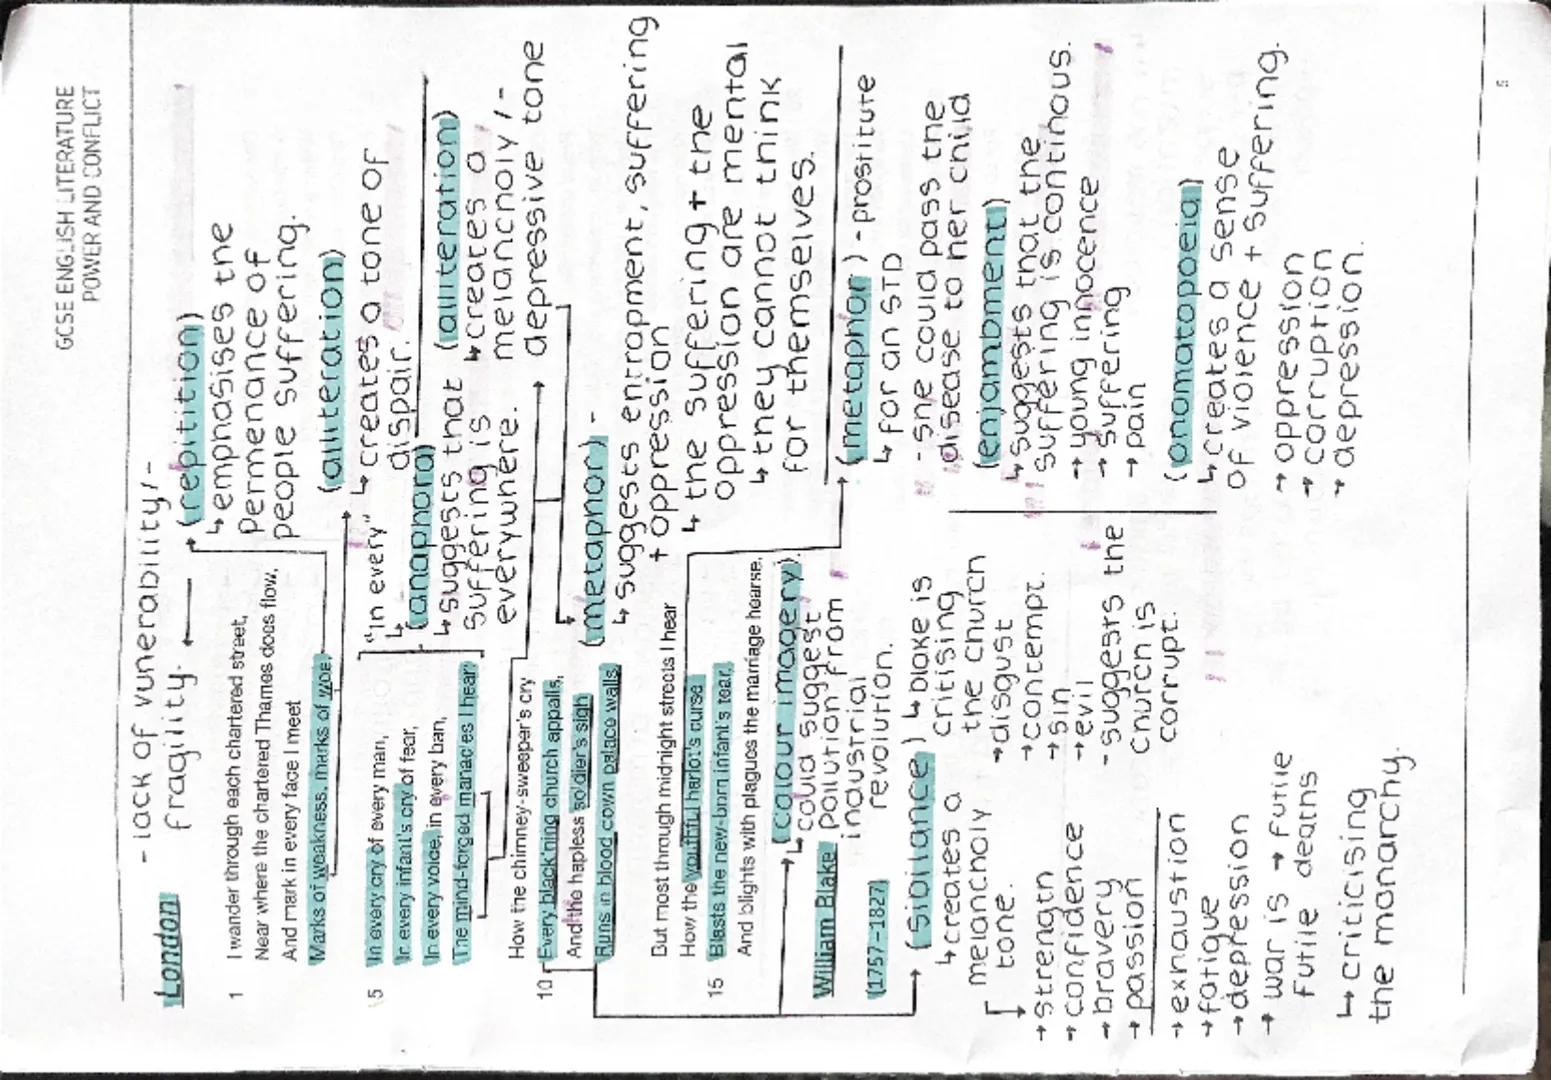 GCSE ENGLISH LITERATURE
POWER AND CONFLICT
London
- lack of vunerability/-
fragility.
1
I wander through each chartered street,
Near where the chartered Thames does flow,
And mark in every face I meet
Marks of weakness, marks of woe.
5
In every cry of every man,
In every infant's cry of fear,
In every voice, in every ban,
The mind-forged manacles I hear:
How the chimney-sweeper's cry
10
Every black'ning church appalls,
And the hapless soldier's sigh
Runs in blood down palace walls.
But most through midnight streets I hear
How the youthful harlot's curse
15
Blasts the new-born infant's tear,
And blights with plagues the marriage hearse.
William Blake
(1757-1827)
(repitition)
↳ emphasises the
permenance of
people suffering.
(alliteration)
↳ creates a tone of
dispair.
"in every"
↳
(anaphora)
↳ suggests that
suffering is
everywhere.
(alliteration)
↳ creates a
melancholy/-
depressive tone
(metaphor) -
↳ suggests entrapment, suffering
+ oppression
↳ the suffering + the
oppression are mental
↳ they cannot think
for themselves.
(metaphor) - prostitute
↳ for an STD
- she could pass the
disease to her child
(enjambment)
↳ suggests that the
suffering is continous.
→ young innocence
→ suffering
→ pain
(onomatopoeia)
↳ creates a sense
of violence + suffering.
→ oppression
→ corruption
→ depression.
(colour imagery)
↳ could suggest
polution from
industrial
revolution.
↳ blake is
critising
the church
→ disgust
→ contempt.
→ sin
→ evil
- suggests the
church is
corrupt.
(sibilance)
↳ creates a
melancholy
tone.
→ strength
→ confidence
→ bravery
→ passion
→ exhaustion
→ fatigue
→ depression
→ war is → futile
futile deaths
↳ criticising
the monarchy.
5